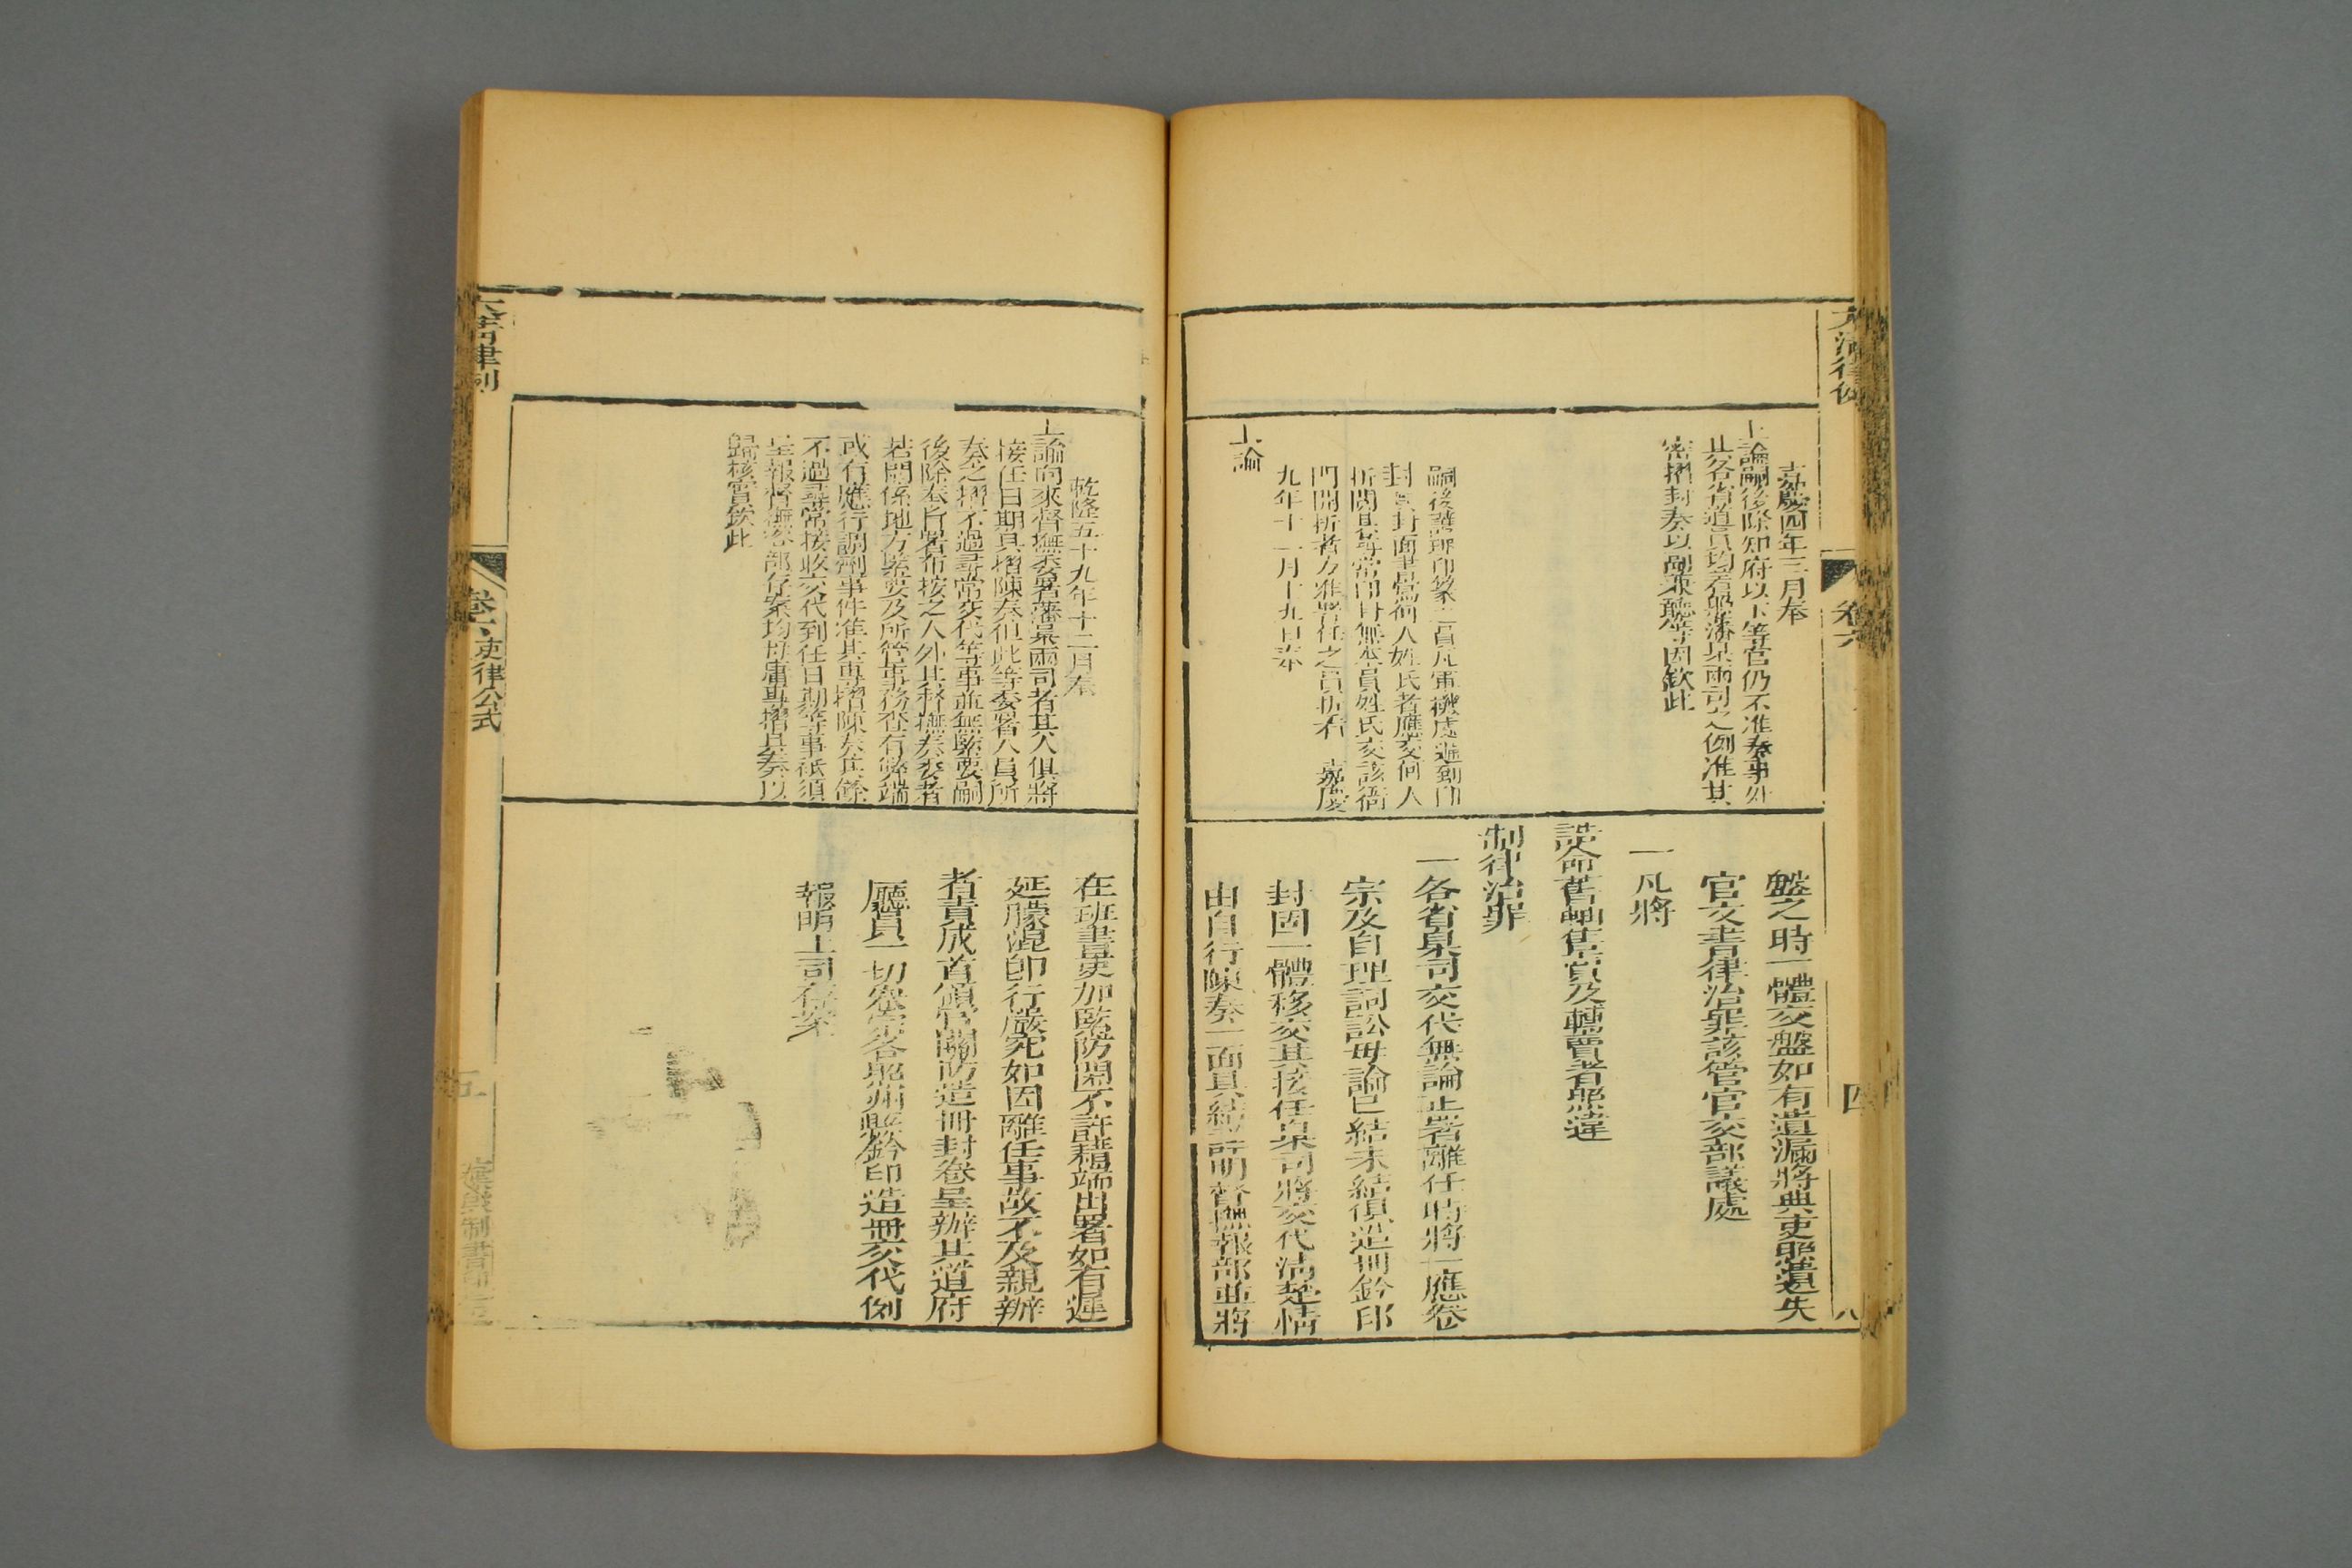 大清律例
卷六
四
嘉慶四年三月奉
上諭嗣後除知府以下等官仍不准奏事外
其各省道員均着照藩臬兩司之例准其
密摺封奏以副兼聽等因欽此
嗣後護理印篆之員凡軍機處遞到印
封其封面書寫何人姓氏者應交何人
拆閱其尋常印封無本員姓氏交該衙
門開拆者方准署任之員拆看 嘉慶
九年十一月十九日奉
上諭
盤之時一體交盤如有遺漏將典吏照遺失
官文書律治罪該管官交部議處
一凡將
誥命舊軸售賣及轉賣者照違
制律治罪
一各省臬司交代無論正署離任時將一應卷
宗及自理詞訟毋論已結未結俱造冊鈐印
封固一體移交其接任臬司將交代清楚情
由自行陳奏一面具結詳明督撫報部並將
乾隆五十九年十二月奉
上諭向來督撫委署藩臬兩司者其人俱將
接任日期具摺陳奏但此等委署人員所
奏之摺不過尋常交代等事並無緊要嗣
後除奉旨署布按之人外其督撫奏委者
若關係地方緊要及所管事務查有弊端
或有應行調劑事件准其專摺陳奏其餘
不過尋常接收交代到任日期等事祇須
呈報督撫咨部存案均毋庸專摺具奏以
歸核實欽此
在班書吏加緊防閑不許藉端出署如有遲
延朦混即行嚴究如因離任事故不及親辦
者責成首領官關防造冊封卷呈辦其道府
廳員一切案宗各照州縣鈐印造冊交代例
報明上司存案
大清律例
卷六 吏律公式
五
棄毀制書印信